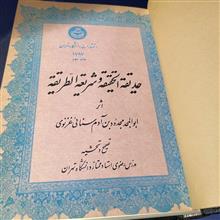 انتشارات دانشگاه تهران
حدیقة الحقیقة و شریعة الطریقة
اثر
ابوالمجد مجدود بن آدم سنائی غزنوی
تصحیح و تحشیه
مدرس رضوی استاد ممتاز دانشگاه تهران